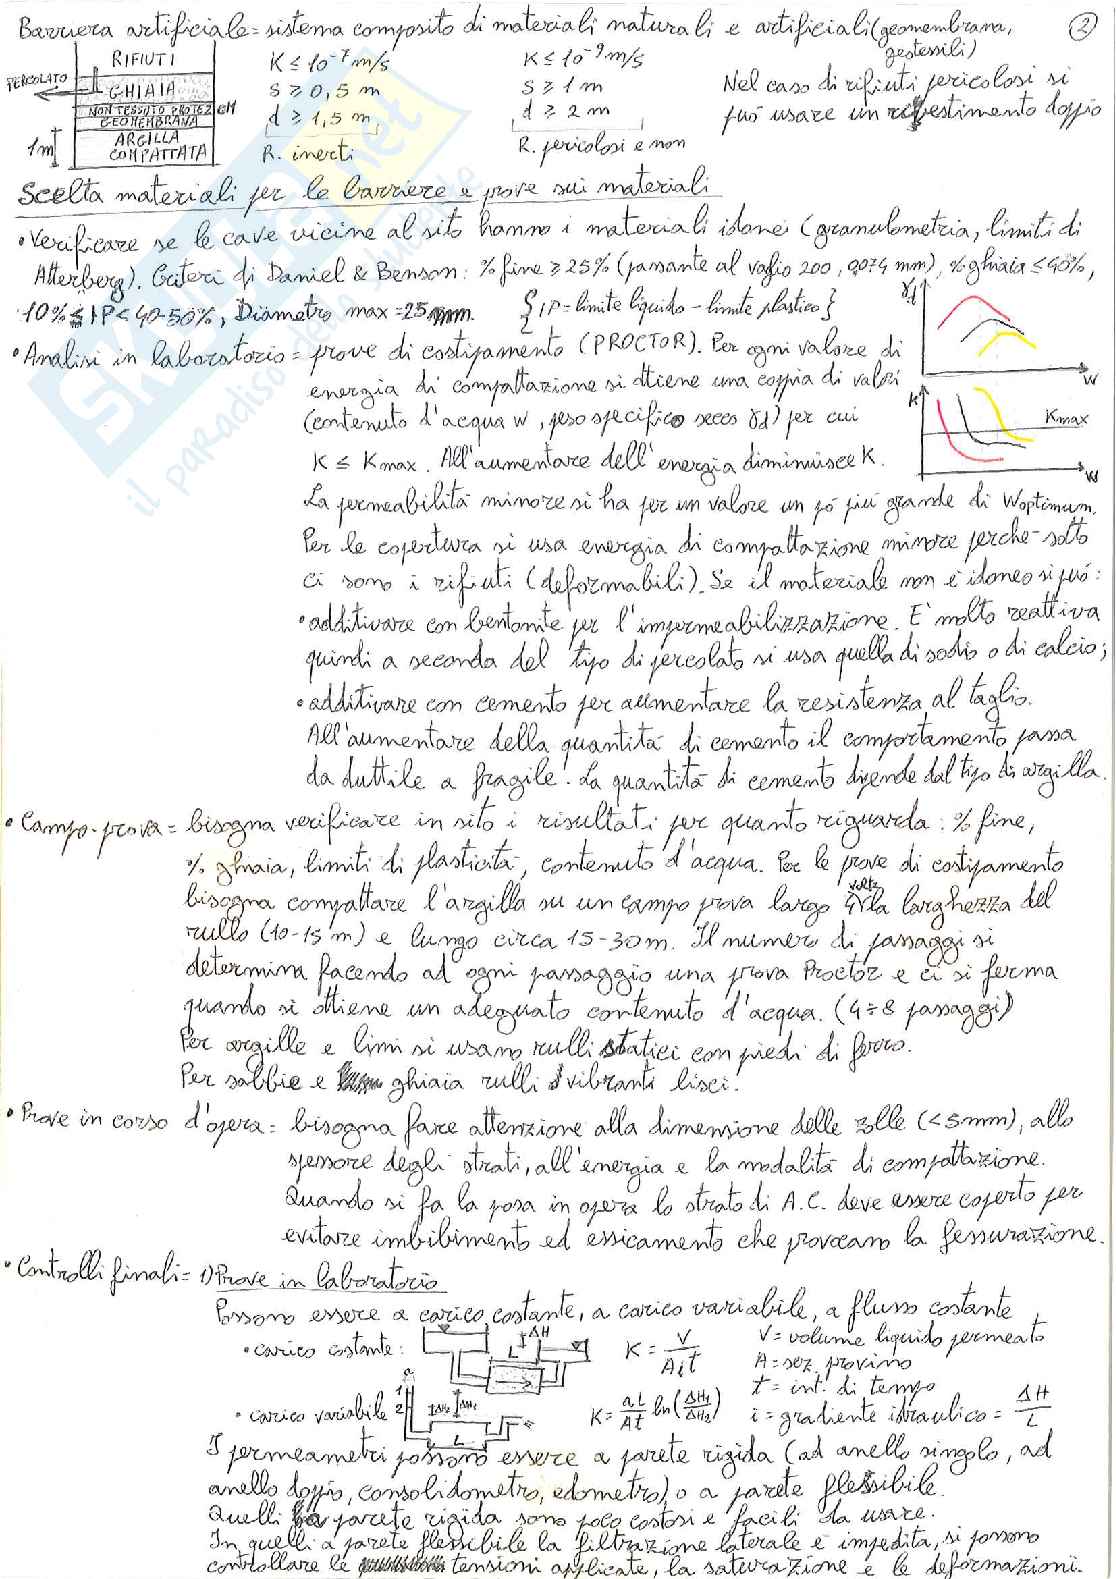 Barriera artificiale = sistema composito di materiali naturali e artificiali (geomembrana, geotessili)
2
RIFIUTI
PERCOLATO
GHIAIA
NON TESSUTO PROTEZ. GM
GEOMEMBRANA
ARGILLA COMPATTATA
1m
K ≤ 10⁻⁷ m/s
s ≥ 0,5 m
d ≥ 1,5 m
R. inerti
K ≤ 10⁻⁹ m/s
s ≥ 1 m
d ≥ 2 m
R. pericolosi e non
Nel caso di rifiuti pericolosi si
può usare un rivestimento doppio
Scelta materiali per le barriere e prove sui materiali
• Verificare se le cave vicine al sito hanno i materiali idonei (granulometria, limiti di
Atterberg). Criteri di Daniel & Benson: % fine ≥ 25% (passante al vaglio 200, 0,074 mm), % ghiaia ≤ 40%,
10% ≤ IP < 40-50%, Diametro max = 25 mm. {IP = limite liquido - limite plastico}
• Analisi in laboratorio = prove di costipamento (PROCTOR). Per ogni valore di
energia di compattazione si ottiene una coppia di valori
(contenuto d'acqua w, peso specifico secco γd) per cui
K ≤ Kmax. All'aumentare dell'energia diminuisce K.
γd
w
K
Kmax
w
La permeabilità minore si ha per un valore un pó più grande di Woptimum.
Per le copertura si usa energia di compattazione minore perche sotto
ci sono i rifiuti (deformabili). Se il materiale non è idoneo si può:
• additivare con bentonite per l'impermeabilizzazione. E' molto reattiva
quindi a seconda del tipo di percolato si usa quella di sodio o di calcio;
• additivare con cemento per aumentare la resistenza al taglio.
All'aumentare della quantità di cemento il comportamento passa
da duttile a fragile. La quantità di cemento dipende dal tipo di argilla.
• Campo-prova = bisogna verificare in sito i risultati per quanto riguarda: % fine,
% ghiaia, limiti di plasticità, contenuto d'acqua. Per le prove di costipamento
bisogna compattare l'argilla su un campo prova largo 4 volte la larghezza del
rullo (10-15 m) e lungo circa 15-30 m. Il numero di passaggi si
determina facendo ad ogni passaggio una prova Proctor e ci si ferma
quando si ottiene un adeguato contenuto d'acqua. (4÷8 passaggi)
Per argille e limi si usano rulli statici con piedi di ferro.
Per sabbie e ghiaia rulli vibranti lisci.
• Prove in corso d'opera = bisogna fare attenzione alla dimensione delle zolle (<5mm), allo
spessore degli strati, all'energia e la modalità di compattazione.
Quando si fa la posa in opera lo strato di A.C. deve essere coperto per
evitare imbibimento ed essicamento che provocano la fessurazione.
• Controlli finali = 1) Prove in laboratorio
Possono essere a carico costante, a carico variabile, a flusso costante
• carico costante:
ΔH
L
K = V / A i t
V = volume liquido permeato
A = sez. provino
t = int. di tempo
i = gradiente idraulico = ΔH / L
• carico variabile
a
1
2
ΔH₁
ΔH₂
L
K = aL / At ln (ΔH₁ / ΔH₂)
I permeametri possono essere a parete rigida (ad anello singolo, ad
anello doppio, consolidometro, edometro) o a parete flessibile.
Quelli a parete rigida sono poco costosi e facili da usare.
In quelli a parete flessibile la filtrazione laterale è impedita, si possono
controllare le tensioni applicate, la saturazione e le deformazioni.
skuola.net
il paradiso dello studente